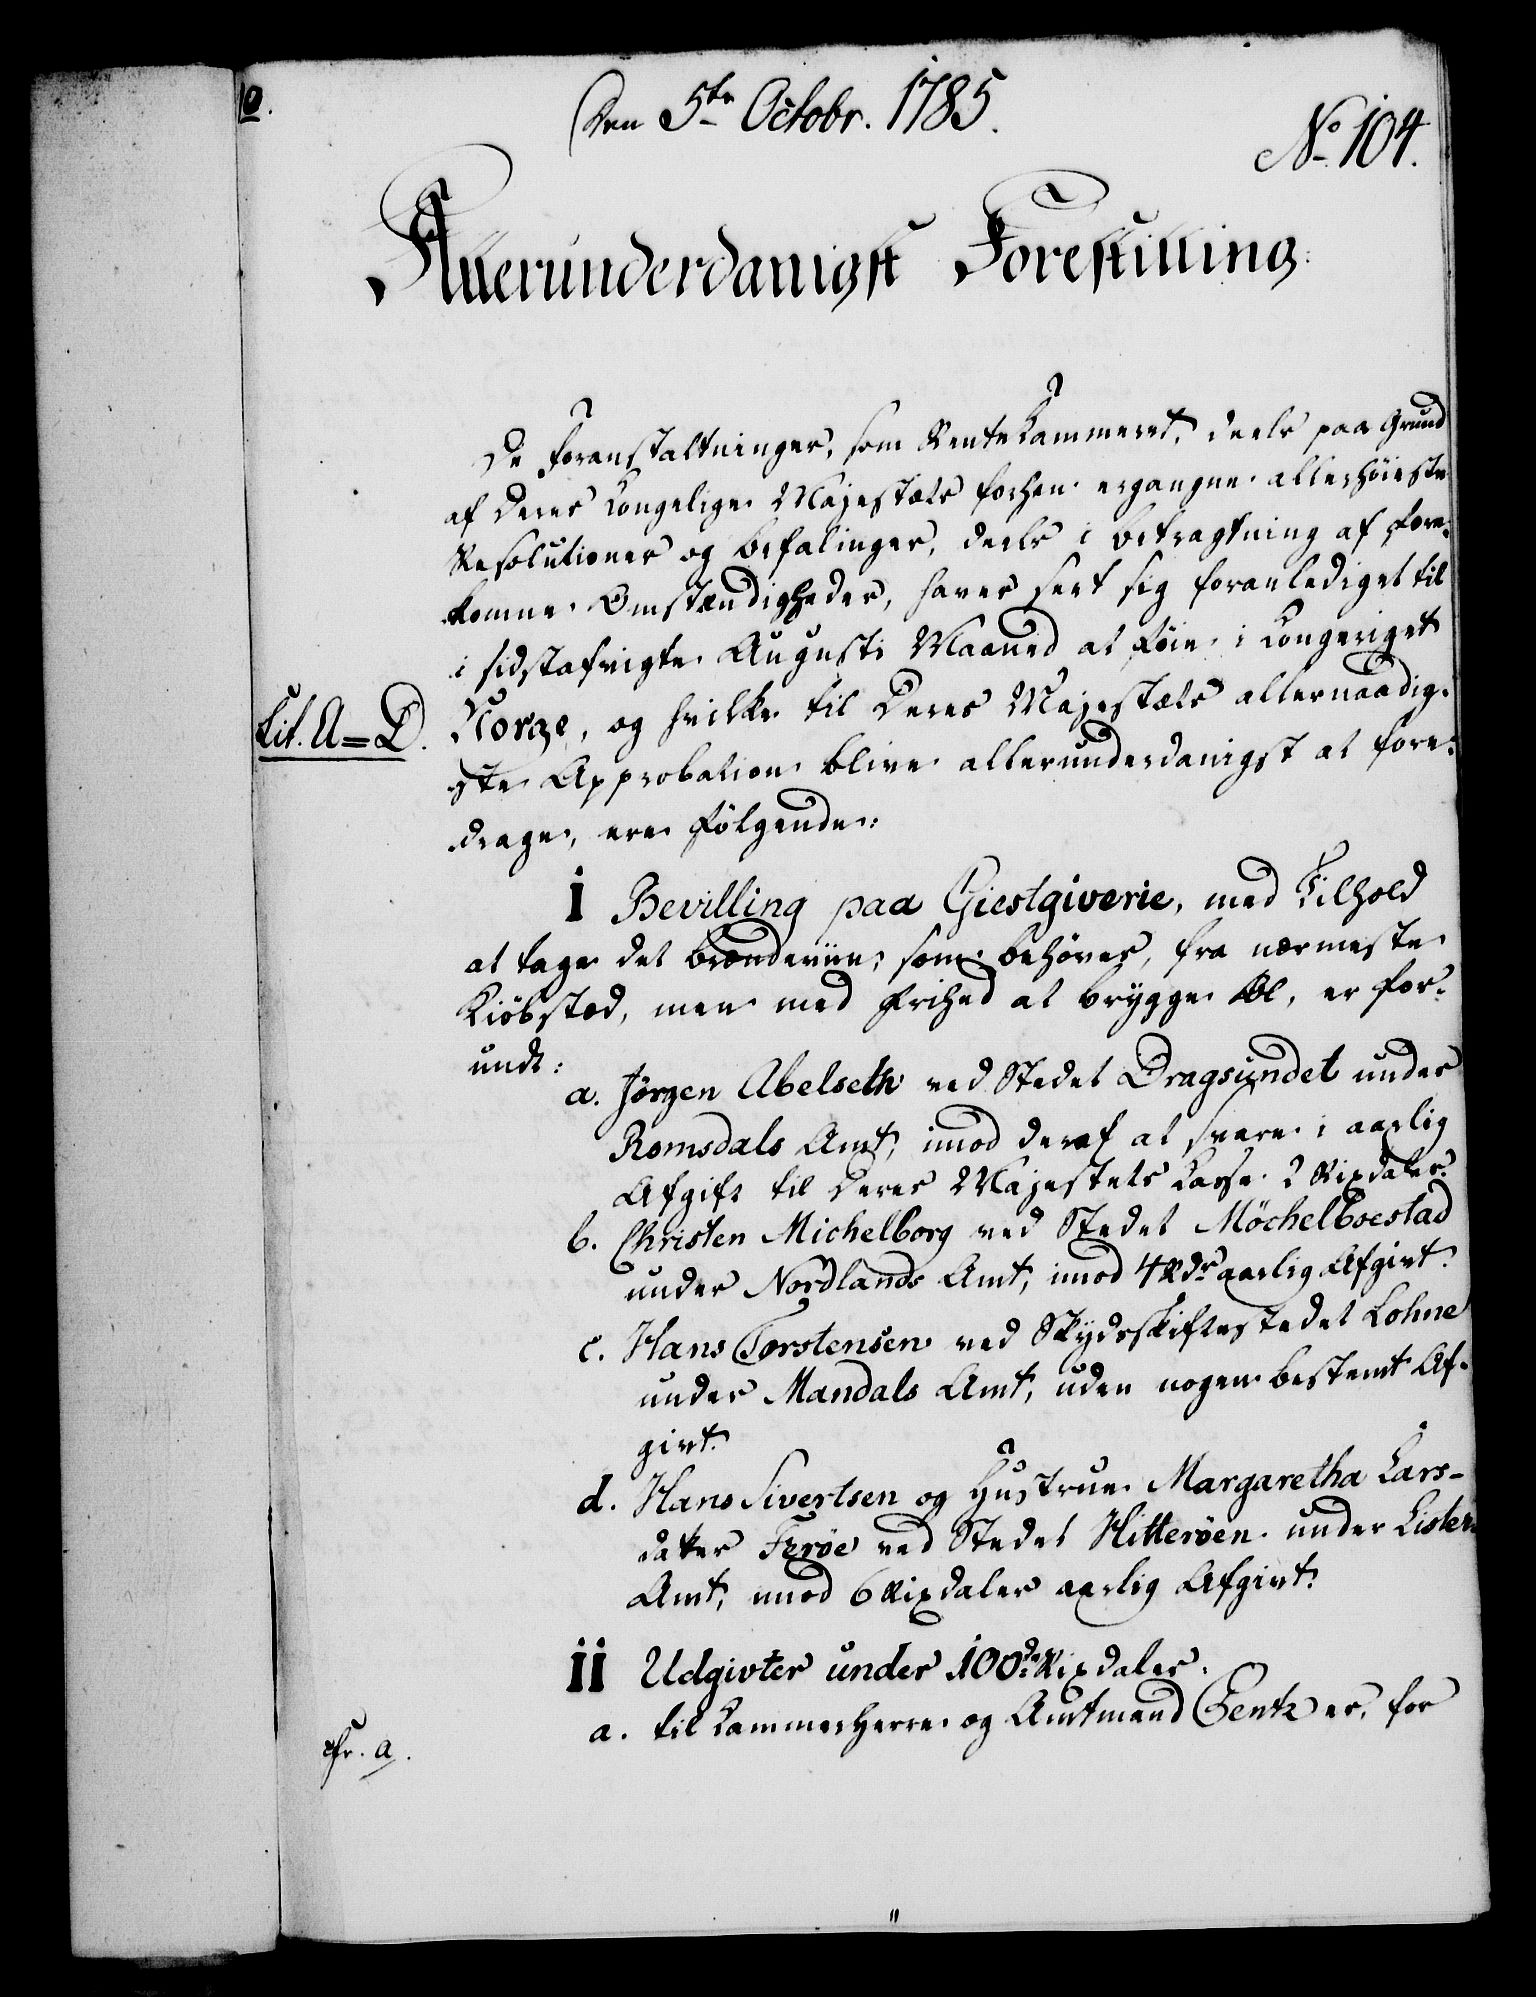 Den 5te Octobr. 1785.
No 104.
Allerunderdanigst Forestilling.
De Foranstaltninger, som RenteKammeret, deels paa Grund
af Deres Kongelige Majestæts forhen ergangne allerhöieste
Resolutioner og Befalinger, deels i Betragtning af Fore-
komne Omstændigheder, haver seet sig foranlediget til
i sidstafvigte Augusti Maaned at föie i Kongeriget
Lit. A=D.
Norge, og hvilke til Deres Majestæts allernaadig-
ste Approbation blive allerunderdanigst at fore-
drage, ere Følgende:
I Bevilling paa Giestgiverie, med Tilhold
at tage det Brændeviin, som behöves, fra nærmeste
Kiöbsted, men med Frihed at brygge Øl, er for-
undt:
a. Jørgen Abelseth ved Stedet Dragsundet under
Romsdals Amt, imod deraf at svare i aarlig
Afgift til Deres Majestets Casse 2 Rixdaler.
b. Christen Michelborg ved Stedet Möchelboestad
under Nordlands Amt, imod 4 Rdr aarlig Afgivt.
c. Hans Torstensen ved Skydsskiftestedet Lohne
under Mandals Amt, uden nogen bestemt Af-
givt.
d. Hans Sivertsen og Hustrue Margaretha Lars-
datter Ferøe ved Stedet Hitteröen under Lister
Amt, imod 6 Rixdaler aarlig Afgivt.
II Udgivter under 100de Rixdaler.
a. til Kammerherre og Amtmand Gentz er, for
cfr. a.